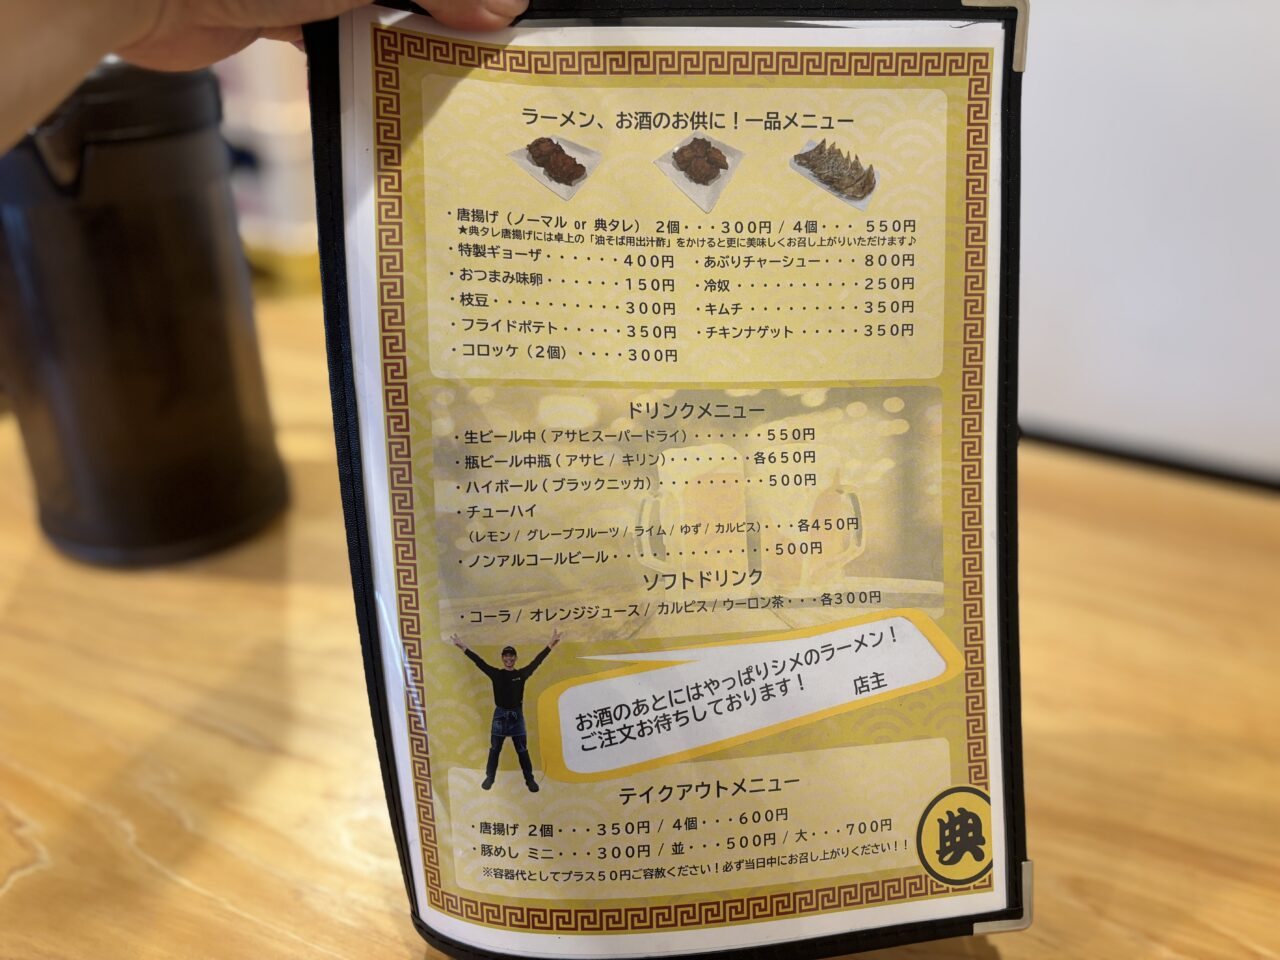 ラーメン、お酒のお供に！一品メニュー
・唐揚げ（ノーマル or 典タレ） 2個・・・300円 / 4個・・・ 550円
★典タレ唐揚げには卓上の「油そば用出汁酢」をかけると更に美味しくお召し上がりいただけます♪
・特製ギョーザ・・・・・・400円 ・あぶりチャーシュー・・・800円
・おつまみ味卵・・・・・・150円 ・冷奴・・・・・・・・・・250円
・枝豆・・・・・・・・・・300円 ・キムチ・・・・・・・・・350円
・フライドポテト・・・・・350円 ・チキンナゲット・・・・・350円
・コロッケ（2個）・・・・300円
ドリンクメニュー
・生ビール中(アサヒスーパードライ)・・・・・・550円
・瓶ビール中瓶(アサヒ / キリン)・・・・・・・各650円
・ハイボール(ブラックニッカ)・・・・・・・・・500円
・チューハイ
(レモン / グレープフルーツ / ライム / ゆず / カルピス)・・・各450円
・ノンアルコールビール・・・・・・・・・・・・500円
ソフトドリンク
・コーラ / オレンジジュース / カルピス / ウーロン茶・・・各300円
お酒のあとにはやっぱりシメのラーメン！
ご注文お待ちしております！ 店主
テイクアウトメニュー
・唐揚げ 2個・・・350円 / 4個・・・600円
・豚めし ミニ・・・300円 / 並・・・500円 / 大・・・700円
※容器代としてプラス50円ご容赦ください！必ず当日中にお召し上がりください！！
典